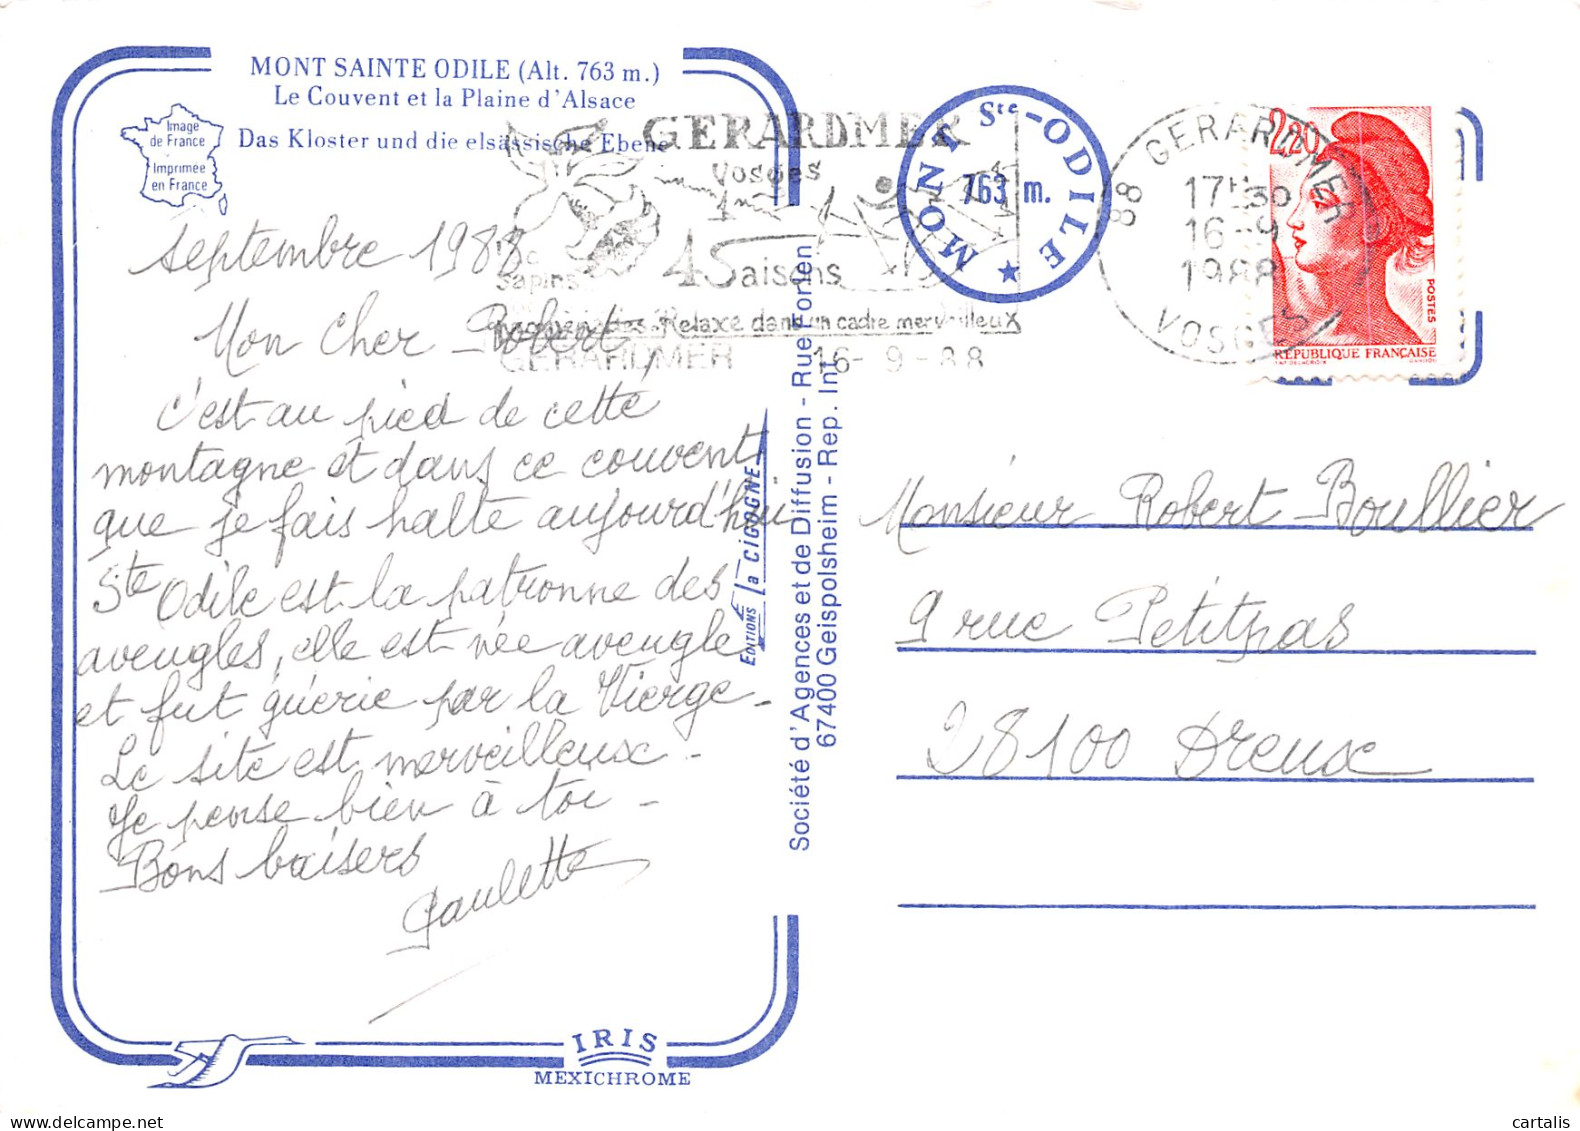 MONT SAINTE ODILE (Alt. 763 m.)
Le Couvent et la Plaine d'Alsace
Das Kloster und die elsässische Ebene
Image
de France
Imprimée
en France
GERARDMER
Vosges
Sapins
4 Saisons
Relaxe dans un cadre merveilleux
GERARDMER 16-9-88
MONT Ste-ODILE
763 m.
88 GERARDMER
17H30
16-9
1988
VOSGES
2,20
POSTES
RÉPUBLIQUE FRANÇAISE
septembre 1988
Mon cher Robert,
c'est au pied de cette
montagne et dans ce couvent
que je fais halte aujourd'hui
Ste Odile est la patronne des
aveugles, elle est née aveugle
et fut guérie par la Vierge-
Le site est merveilleux -
Je pense bien à toi -
Bons baisers
Paulette
EDITIONS La CIGOGNE
Société d'Agences et de Diffusion - Rue Forlen
67400 Geispolsheim - Rep. Int.
Monsieur Robert Boullier
9 rue Petitpas
28100 Dreux
IRIS
MEXICHROME
cartalis